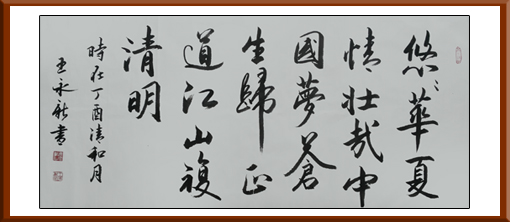 悠〻華夏
情壯哉中
國夢蒼
生歸正
道江山複
清明
時在丁酉清和月
永書